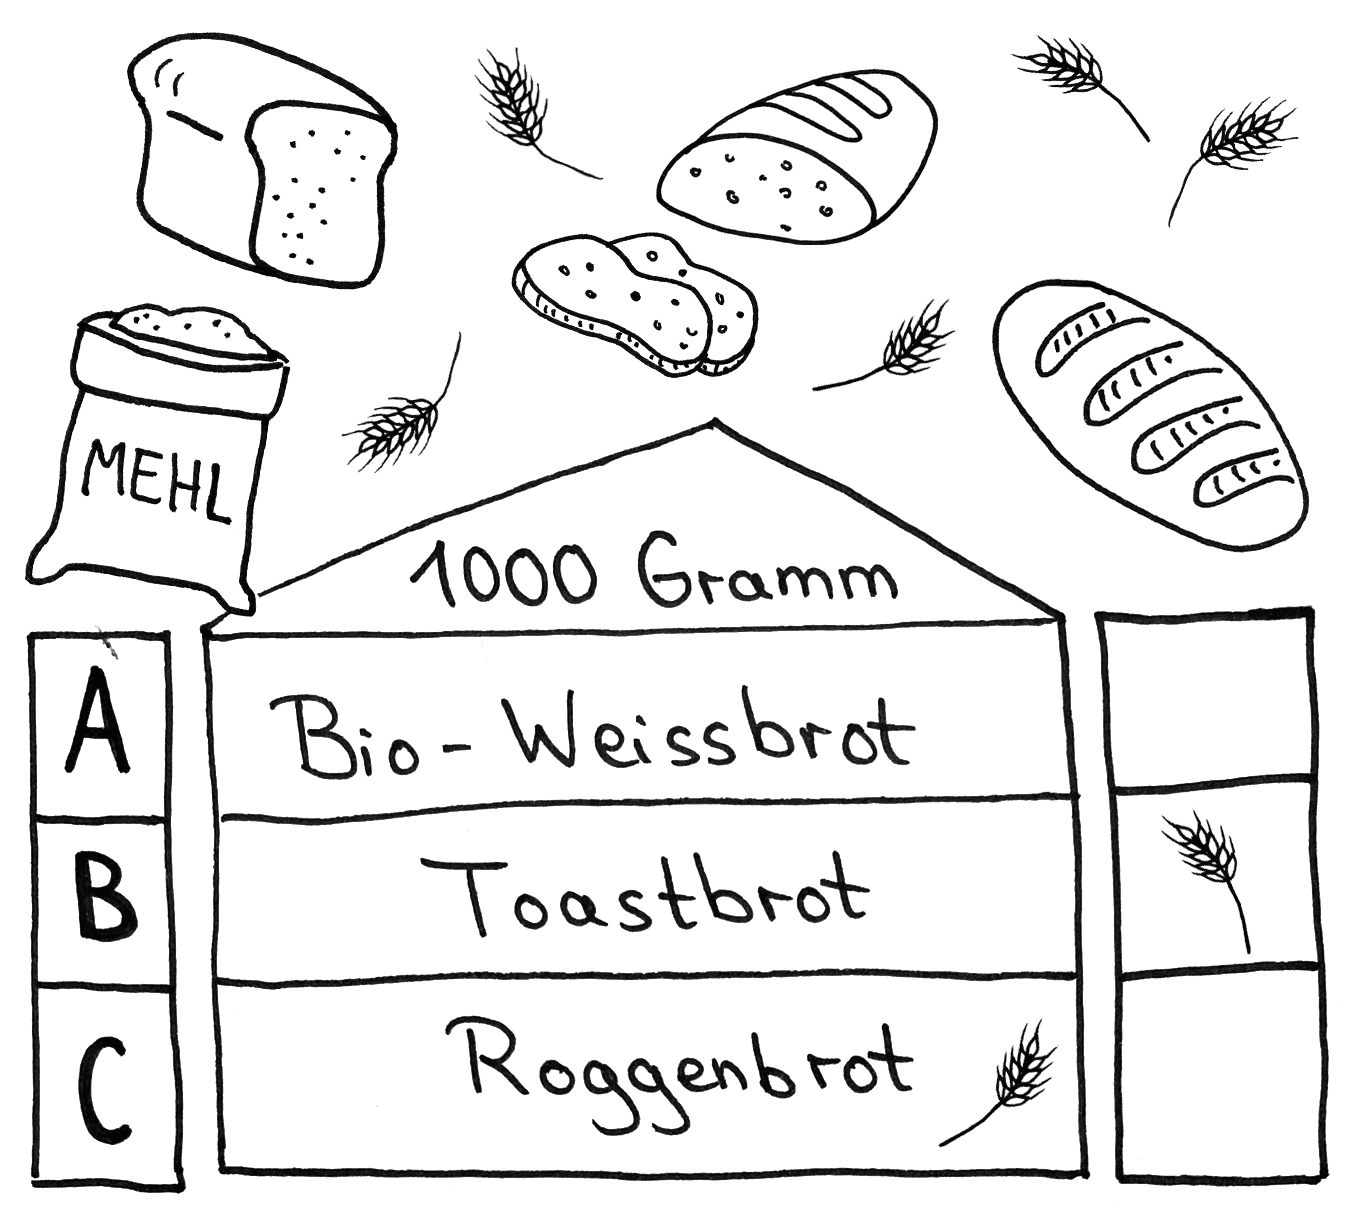 MEHL
1000 Gramm
A
Bio-Weissbrot
B
Toastbrot
C
Roggenbrot